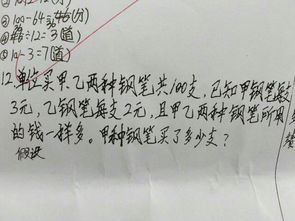 100-64=36(分)
÷12=3(道)
10-3=7(道)
12.单位买甲.乙两种钢笔共100支,已知甲钢笔每支
3元,乙钢笔每支2元,且甲乙两种钢笔所用
的钱一样多。甲种钢笔买了多少支?
假设